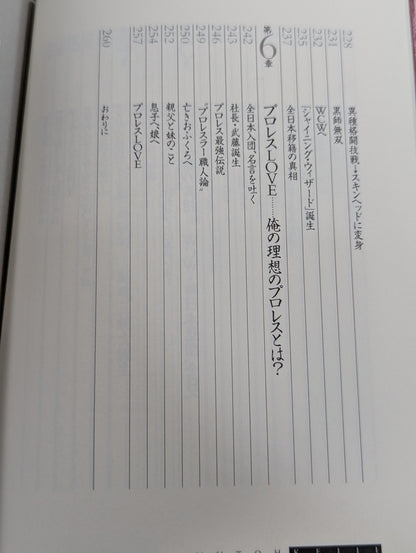 228 異種格闘技戦→スキンヘッドに変身
231 黒師無双
232 WCWへ
235 「シャイニング・ウィザード」誕生
237 全日本移籍の真相
第6章 プロレスLOVE……俺の理想のプロレスとは?
242 全日本入団、名言を吐く
243 社長・武藤誕生
246 プロレス最強伝説
249 “プロレスラー職人論”
250 亡きおふくろへ
252 親父と妹のこと
254 息子へ、娘へ
257 プロレスLOVE
260 おわりに